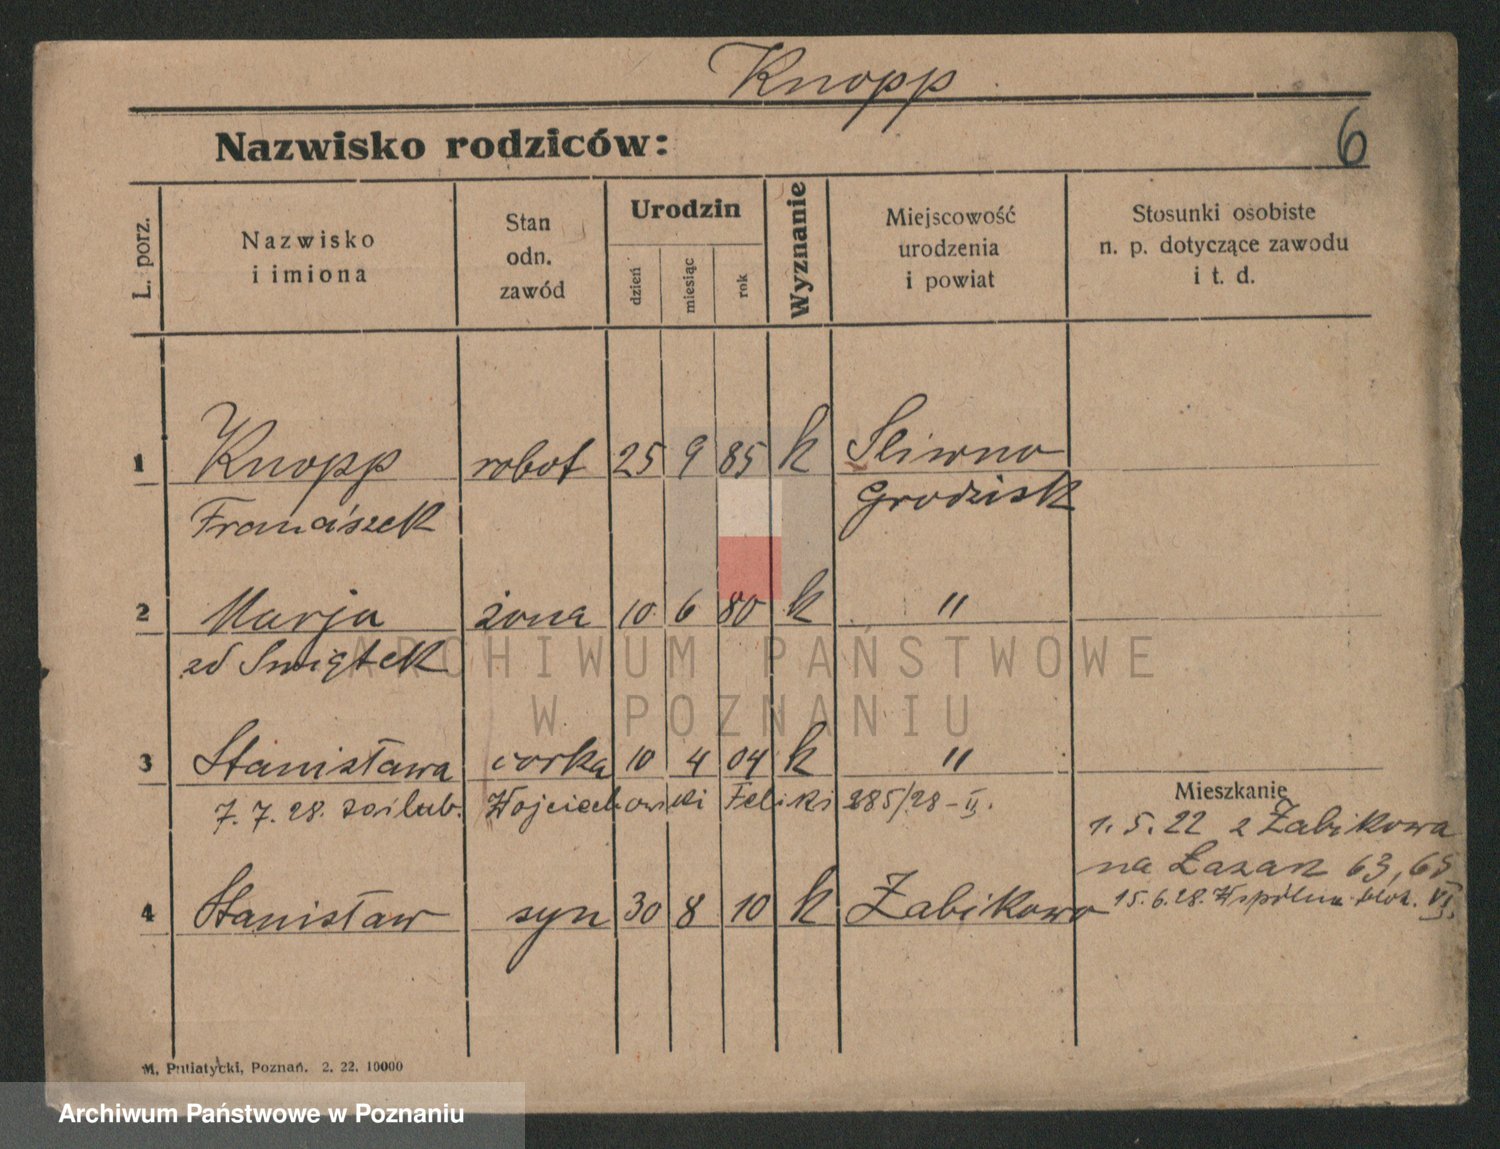 Knopp
Nazwisko rodziców:
6
L. porz.
Nazwisko
i imiona
Stan
odn.
zawód
Urodzin
dzień
miesiąc
rok
Wyznanie
Miejscowość
urodzenia
i powiat
Stosunki osobiste
n. p. dotyczące zawodu
i t. d.
1 Knopp robot 25 9 85 k Sliwno
Franciszek Grodzisk
2 Marja żona 10 6 80 k "
zd Swiątek
3 Stanisława corka 10 4 04 k "
7. 7. 28. zaślub. Wojciechowski Feliks 285/28 - II.
Mieszkanie
1. 5. 22 z Żabikowa
na Łazarz 63, 65
15. 6. 28. Wspólna blok. VI
4 Stanisław syn 30 8 10 k Żabikowo
M. Putiatycki, Poznań. 2. 22. 10000
ARCHIWUM PAŃSTWOWE
W POZNANIU
Archiwum Państwowe w Poznaniu